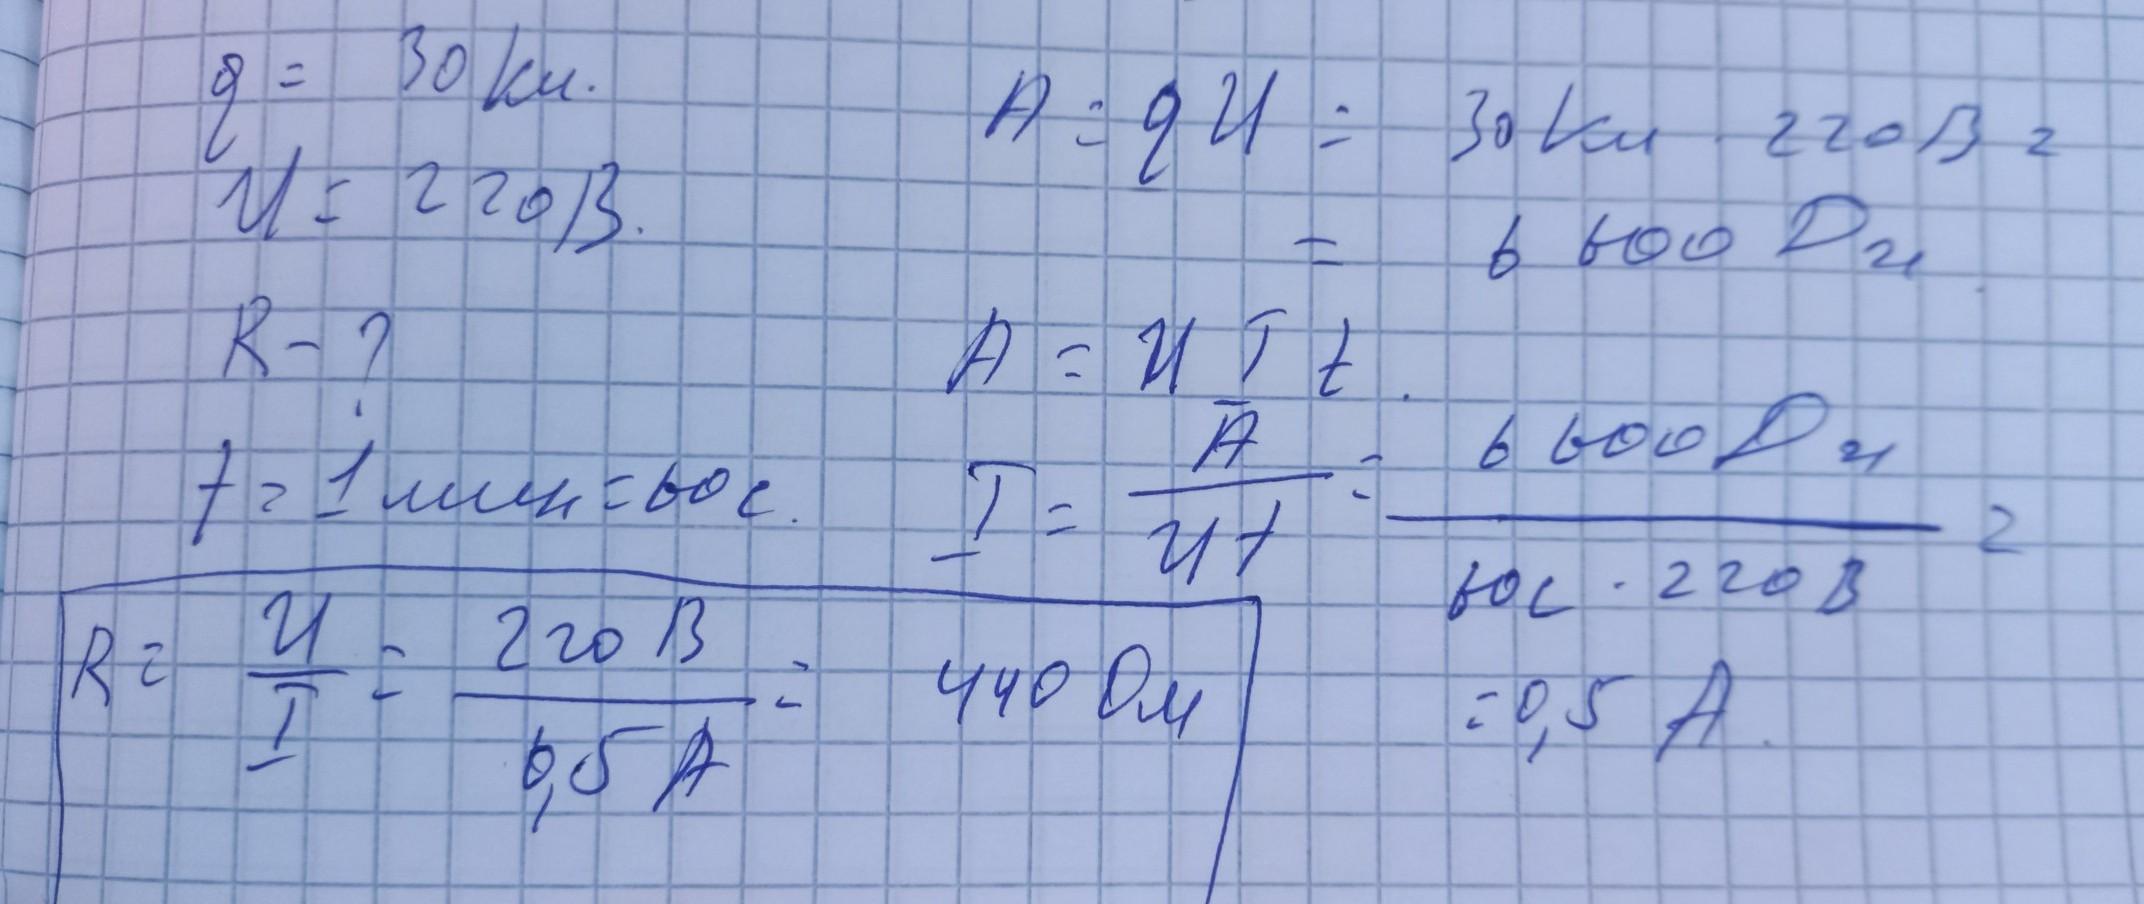 q = 30 Кл.
U = 220 В.
R - ?
t = 1 мин = 60 с.
A = qU = 30 Кл · 220 В =
= 6 600 Дж.
A = U I t.
I = A / Ut = 6 600 Дж / 60 с · 220 В =
= 0,5 А.
R = U / I = 220 В / 0,5 А = 440 Ом